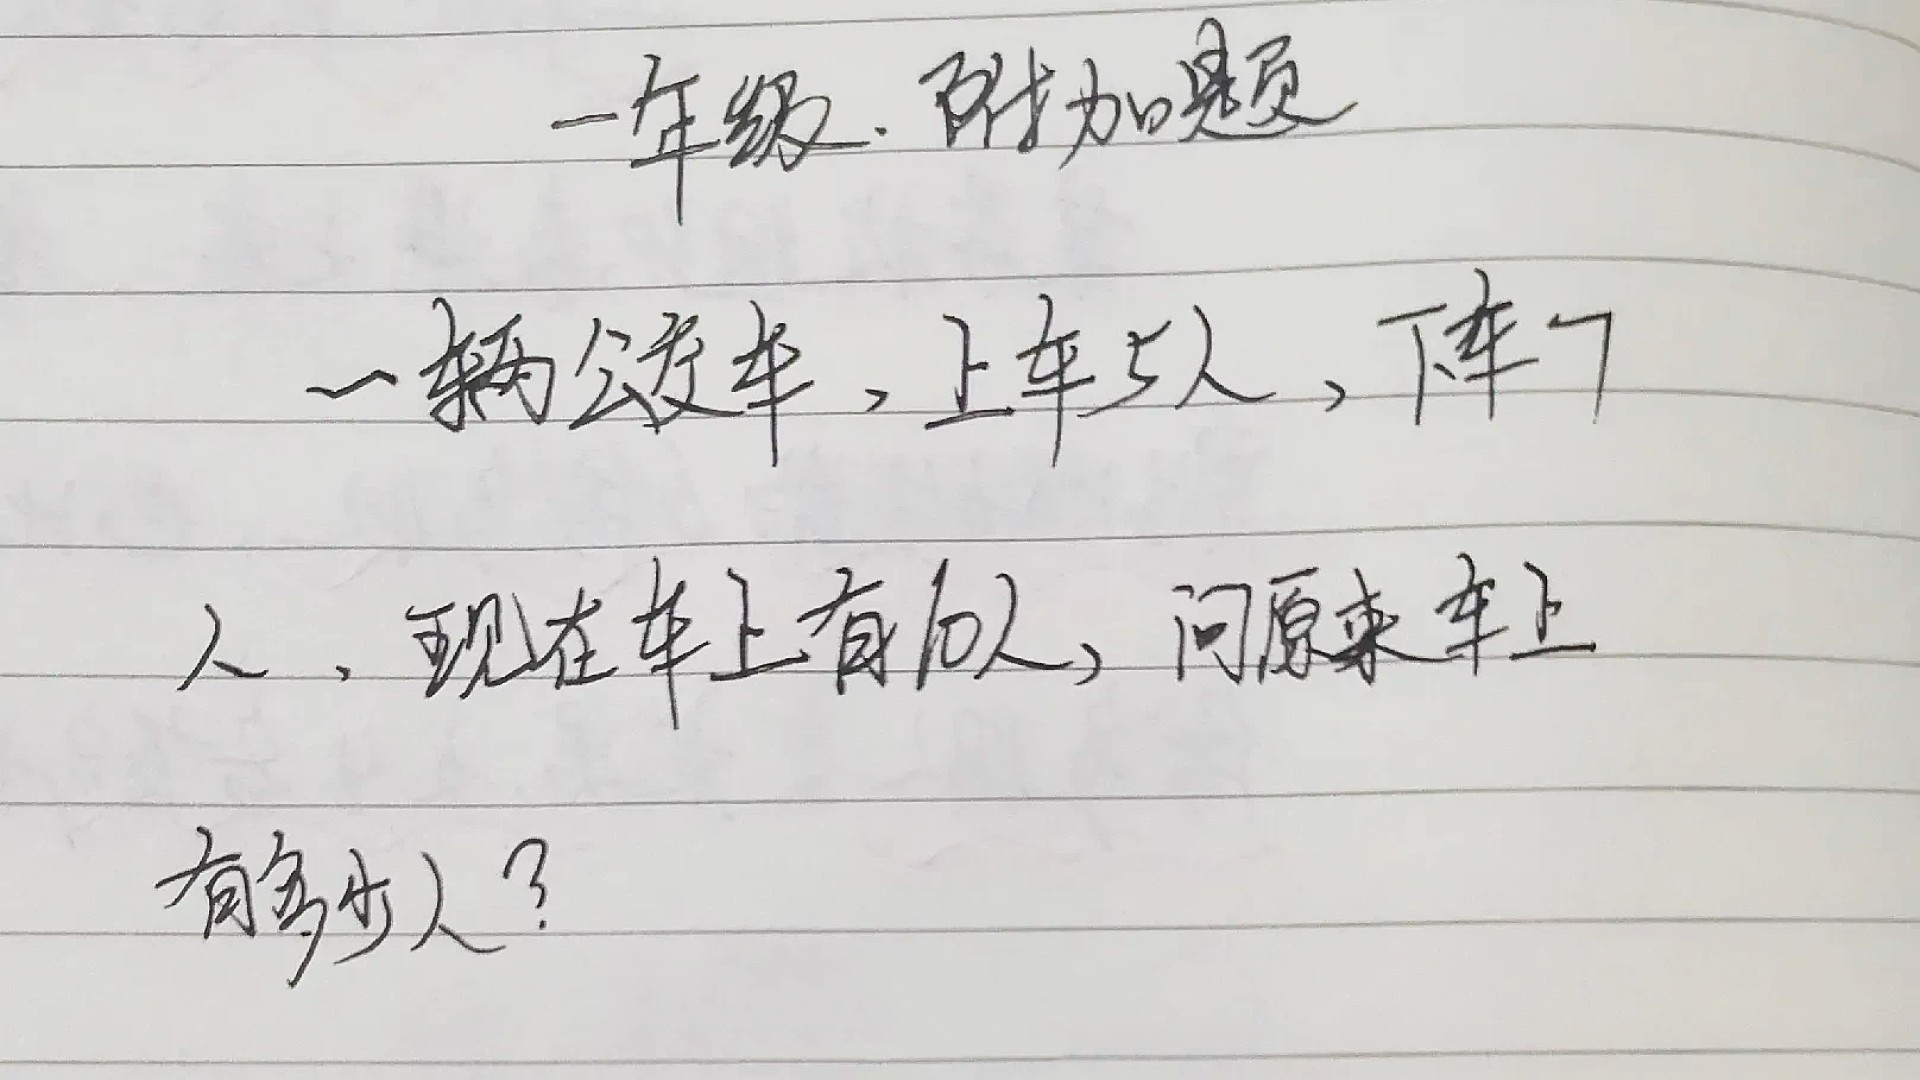 一年级.附加题
一辆公交车,上车5人,下车7
人、现在车上有10人,问原来车上
有多少人?